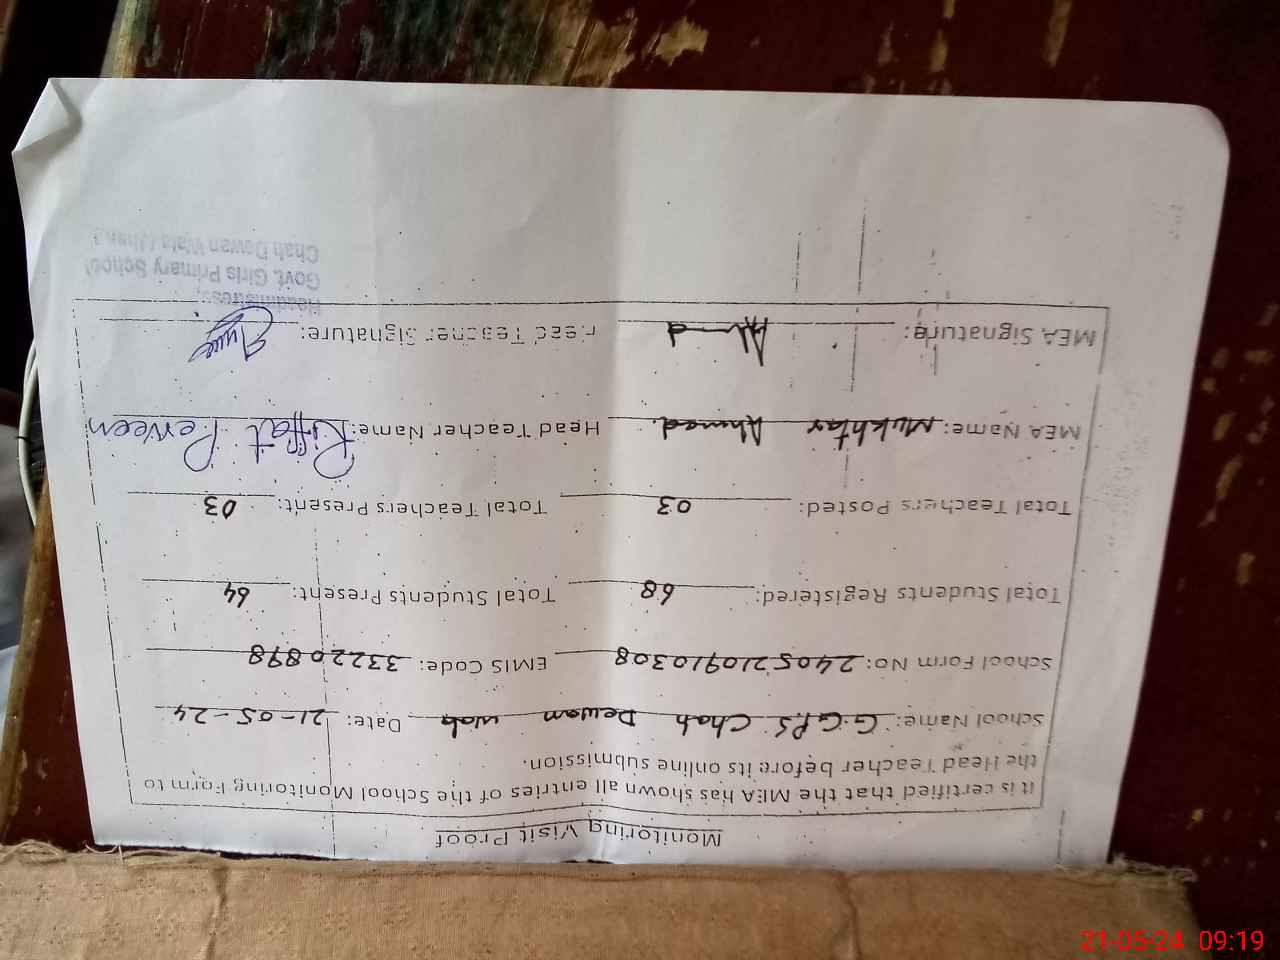 Monitoring Visit Proof
It is certified that the MEA has shown all entries of the School Monitoring Form to
the Head Teacher before its online submission.
School Name: G.G.P.S Chah Dewan Wala Date: 21-05-24
School Form No: 2405210910308 EMIS Code: 33220898
Total Students Registered: 68 Total Students Present: 64
Total Teachers Posted: 03 Total Teachers Present: 03
MEA Name: Mukhtar Ahmed. Head Teacher Name: Riffat Perveen
MEA Signature: Ahmed Head Teacher Signature:
Headmistress,
Govt. Girls Primary School
Chah Dewan Wala (Jhang
21-05-24 09:19